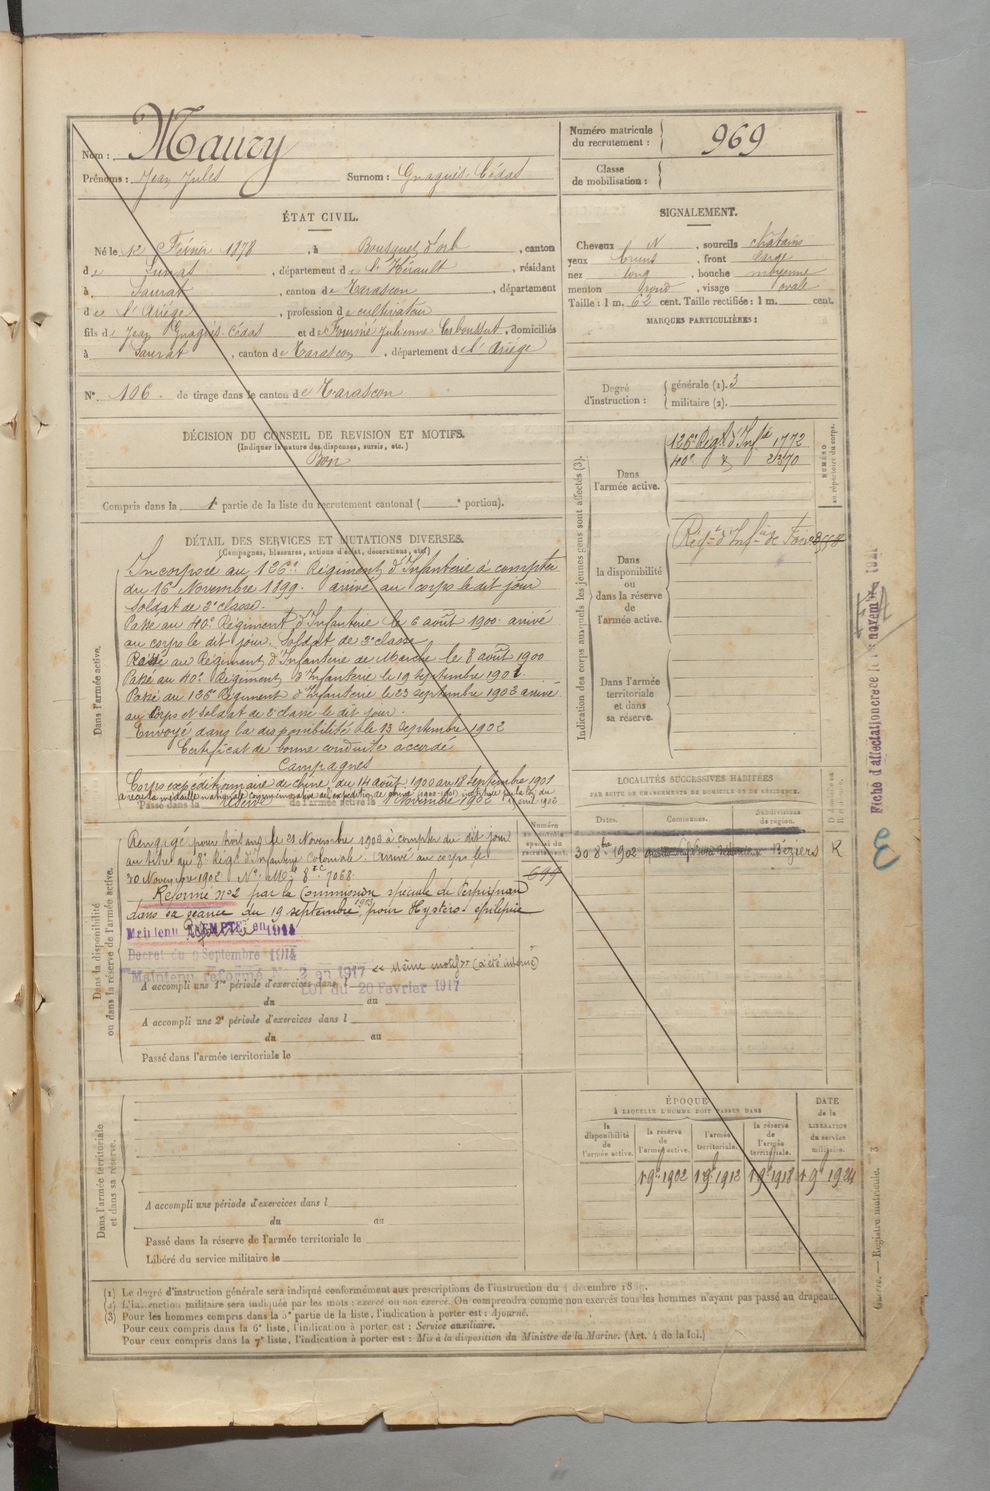 Nom : Maury
Prénoms : Jean Jules Surnom :
Numéro matricule du recrutement : 969
Classe de mobilisation :
ÉTAT CIVIL.
Né le 12 Février 1878, à Bousquet d'orb, canton
de Lunas, département de l'Hérault, résidant
à Saurat, canton de Tarascon, département
de l'Ariége, profession de cultivateur
fils de Jean et de Julienne, domiciliés
à Saurat, canton de Tarascon, département de l'Ariége
N° 106 de tirage dans le canton de Tarascon
DÉCISION DU CONSEIL DE REVISION ET MOTIFS.
(Indiquer la nature des dispenses, sursis, etc.)
Bon
Compris dans la 1e partie de la liste du recrutement cantonal ( e portion).
SIGNALEMENT.
Cheveux N, sourcils châtains
yeux bruns, front large
nez long, bouche moyenne
menton rond, visage ovale
Taille : 1 m. 62 cent. Taille rectifiée : 1 m. cent.
MARQUES PARTICULIÈRES :
Degré d'instruction : générale (1). 3
militaire (2).
DÉTAIL DES SERVICES ET MUTATIONS DIVERSES.
(Campagnes, blessures, actions d'éclat, décorations, etc.)
Dans l'armée active.
Incorporé au 126e Régiment d'Infanterie à compter
du 16 Novembre 1899. arrivé au corps le dit jour
Soldat de 2e classe.
Passé au 40e Régiment d'Infanterie le 6 août 1900. arrivé
au corps le dit jour. Soldat de 2e classe
Passé au Régiment d'Infanterie de Marche le 8 août 1900
Passé au 40e Régiment d'Infanterie le 19 septembre 1901.
Passé au 126e Régiment d'Infanterie le 23 septembre 1902 arrivé
au Corps et Soldat de 2e classe le dit jour.
Envoyé dans la disponibilité le 13 Septembre 1902
Certificat de bonne conduite accordé
Campagnes
Corps expéditionnaire de chine, du 14 août 1900 au 18 Septembre 1901
Passé dans la réserve de l'armée active le 1 Novembre 1902
Indication des corps auxquels les jeunes gens sont affectés (3).
Dans l'armée active.
126e Régt d'Infie 1772
40e 2370
NUMÉRO au répertoire du corps.
Dans la disponibilité ou dans la réserve de l'armée active.
Régt d'Infie de Foix
Dans l'armée territoriale et dans sa réserve.
LOCALITÉS SUCCESSIVES HABITÉES
PAR SUITE DE CHANGEMENTS DE DOMICILE OU DE RÉSIDENCE.
Dates. Communes. Subdivisions de région.
30 8bre 1902 Béziers R
Numéro au contrôle spécial du recrutement.
Dans la disponibilité ou dans la réserve de l'armée active.
Rengagé pour trois ans le 21 Novembre 1902 à compter du dit jour
au titre du 8e Régt d'Infanterie Coloniale. Arrivé au corps le
30 Novembre 1902 No Mle 8e 7068.
Réformé no 2 par la Commission spéciale de Perpignan
dans sa séance du 19 septembre, pour Hystéro-épilepsie
Maintenu Réformé en 1914
Décret du 9 Septembre 1914
Maintenu réformé No 2 en 1917 << Même motif >> (a été interné)
LOI du 20 Février 1917
A accompli une 1re période d'exercices dans l
du au
A accompli une 2e période d'exercices dans l
du au
Passé dans l'armée territoriale le
Dans l'armée territoriale et dans sa réserve.
A accompli une période d'exercices dans l
du au
Passé dans la réserve de l'armée territoriale le
Libéré du service militaire le
ÉPOQUE
À LAQUELLE L'HOMME DOIT PASSER DANS
la disponibilité de l'armée active.
la réserve de l'armée active.
l'armée territoriale.
la réserve de l'armée territoriale.
DATE de la LIBÉRATION du service militaire.
1 9bre 1902 1 9bre 1912 1 9bre 1918 1 9bre 1924
(1) Le degré d'instruction générale sera indiqué conformément aux prescriptions de l'instruction du 4 décembre 18
(2) L'instruction militaire sera indiquée par les mots : exercé ou non exercé. On comprendra comme non exercés tous les hommes n'ayant pas passé au drapeau.
(3) Pour les hommes compris dans la 5e partie de la liste, l'indication à porter est : Ajourné.
Pour ceux compris dans la 6e liste, l'indication à porter est : Service auxiliaire.
Pour ceux compris dans la 7e liste, l'indication à porter est : Mis à la disposition du Ministre de la Marine. (Art. 4 de la loi.)
Guerre. — Registre matricule. — 3